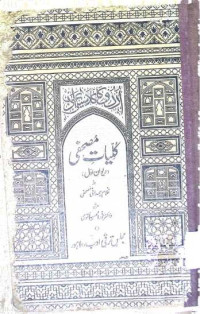 اردو کا کلاسیکی ادب
کلیات مصحفی
(دیوان اول)
غلام ہمدانی مصحفی
مجلس ترقی ادب، لاہور